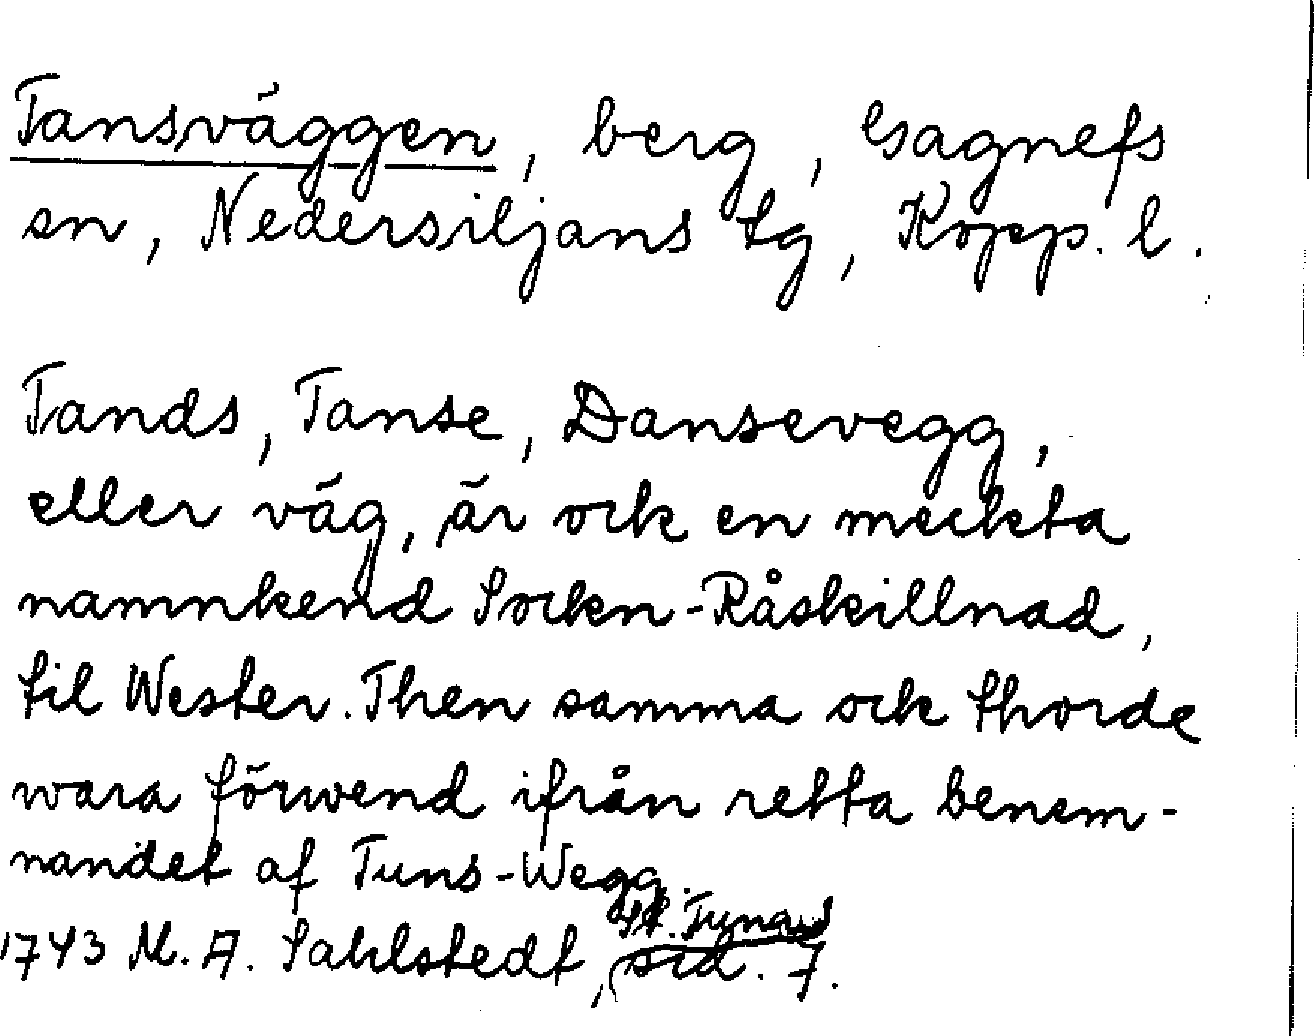 Tansväggen, berg, Gagnefs
sn, Nedersiljans tg, Kopp. l.
Tands, Tanse, Dansevegg,
eller väg, är ock en meckta
namnkend Sockn-Råskillnad,
til Wester. Then samma ock thorde
wara förwend ifrån retta benem-
nandet af Tuns-Wegg.
St. Tuna
1743 M. A. Sahlstedt, sid. 7.